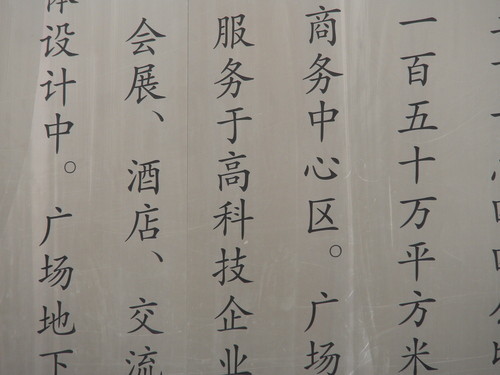 一百五十万平方米
商务中心区。广场
服务于高科技企业
会展、酒店、交流
设计中。广场地下